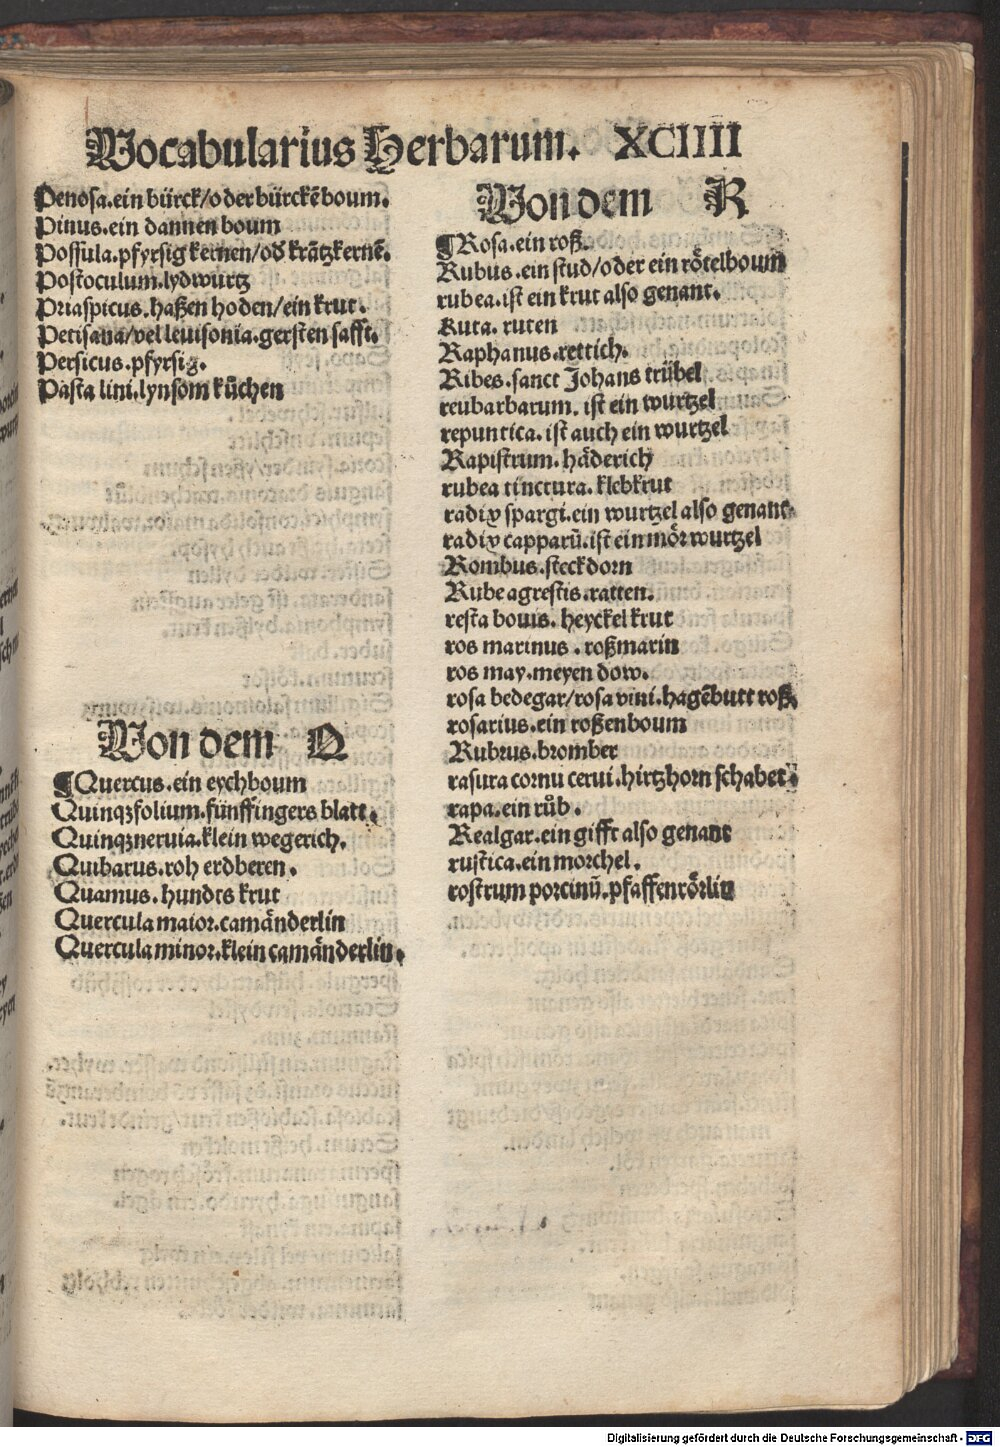 Vocabularius Herbarum. XCIIII
Penosa.ein bürck/oder bürckēboum.
Pinus.ein dannen boum
Possula.pfyrsig kernen/od krātzkernē.
Postoculum.lydwurtz
Priaspicus.haßen hoden/ein krut.
Petisana/vel leuisonia.gersten safft.
Persicus.pfyrsig.
Pasta lini.lynsom kůchen
Von dem Q
¶Quercus.ein eychboum
Quinqꝫfolium.fünffingers blatt.
Quinqꝫneruia.klein wegerich.
Quibarus.roh erdberen.
Quamus.hundts krut
Quercula maior.camänderlin
Quercula minor.klein camänderlin.
Von dem R
¶Rosa.ein roß.
Rubus.ein stud/oder ein rötelboum
rubea.ist ein krut also genant.
Ruta.ruten
Raphanus.rettich.
Ribes.sanct Johans trübel
reubarbarum. ist ein wurtzel
repuntica.ist auch ein wurtzel
Rapistrum.häderich
rubea tinctura.klebkrut
radix spargi.ein wurtzel also genant
radix capparū.ist ein mör wurtzel
Rombus.steckdorn
Rube agrestis.ratten.
resta bouis. heyckel krut
ros marinus.roßmarin
ros may.meyen dow.
rosa bedegar/rosa vini.hagēbutt roß
rosarius.ein roßenboum
Rubrus.bromber
rasura cornu cerui.hirtzhorn schabet
rapa.ein růb.
Realgar.ein gifft also genant
rustica.ein morchel.
rostrum porcinū.pfaffenrörlin
Digitalisierung gefördert durch die Deutsche Forschungsgemeinschaft - DFG